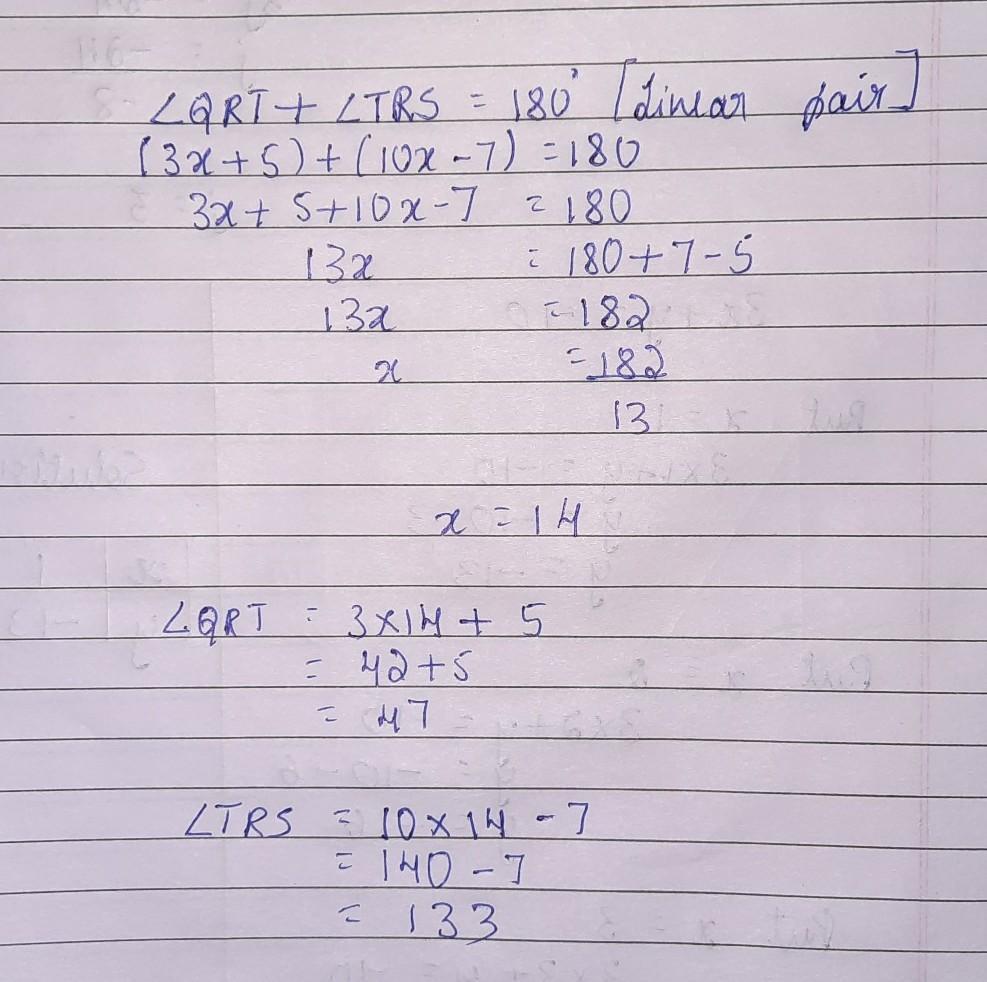 ∠QRT + ∠TRS = 180° [Linear pair]
(3x+5)+(10x-7) = 180
3x+ 5+10x-7 = 180
13x = 180+7-5
13x = 182
x = 182
13
x = 14
∠QRT = 3×14 + 5
= 42+5
= 47
∠TRS = 10×14 - 7
= 140 - 7
= 133